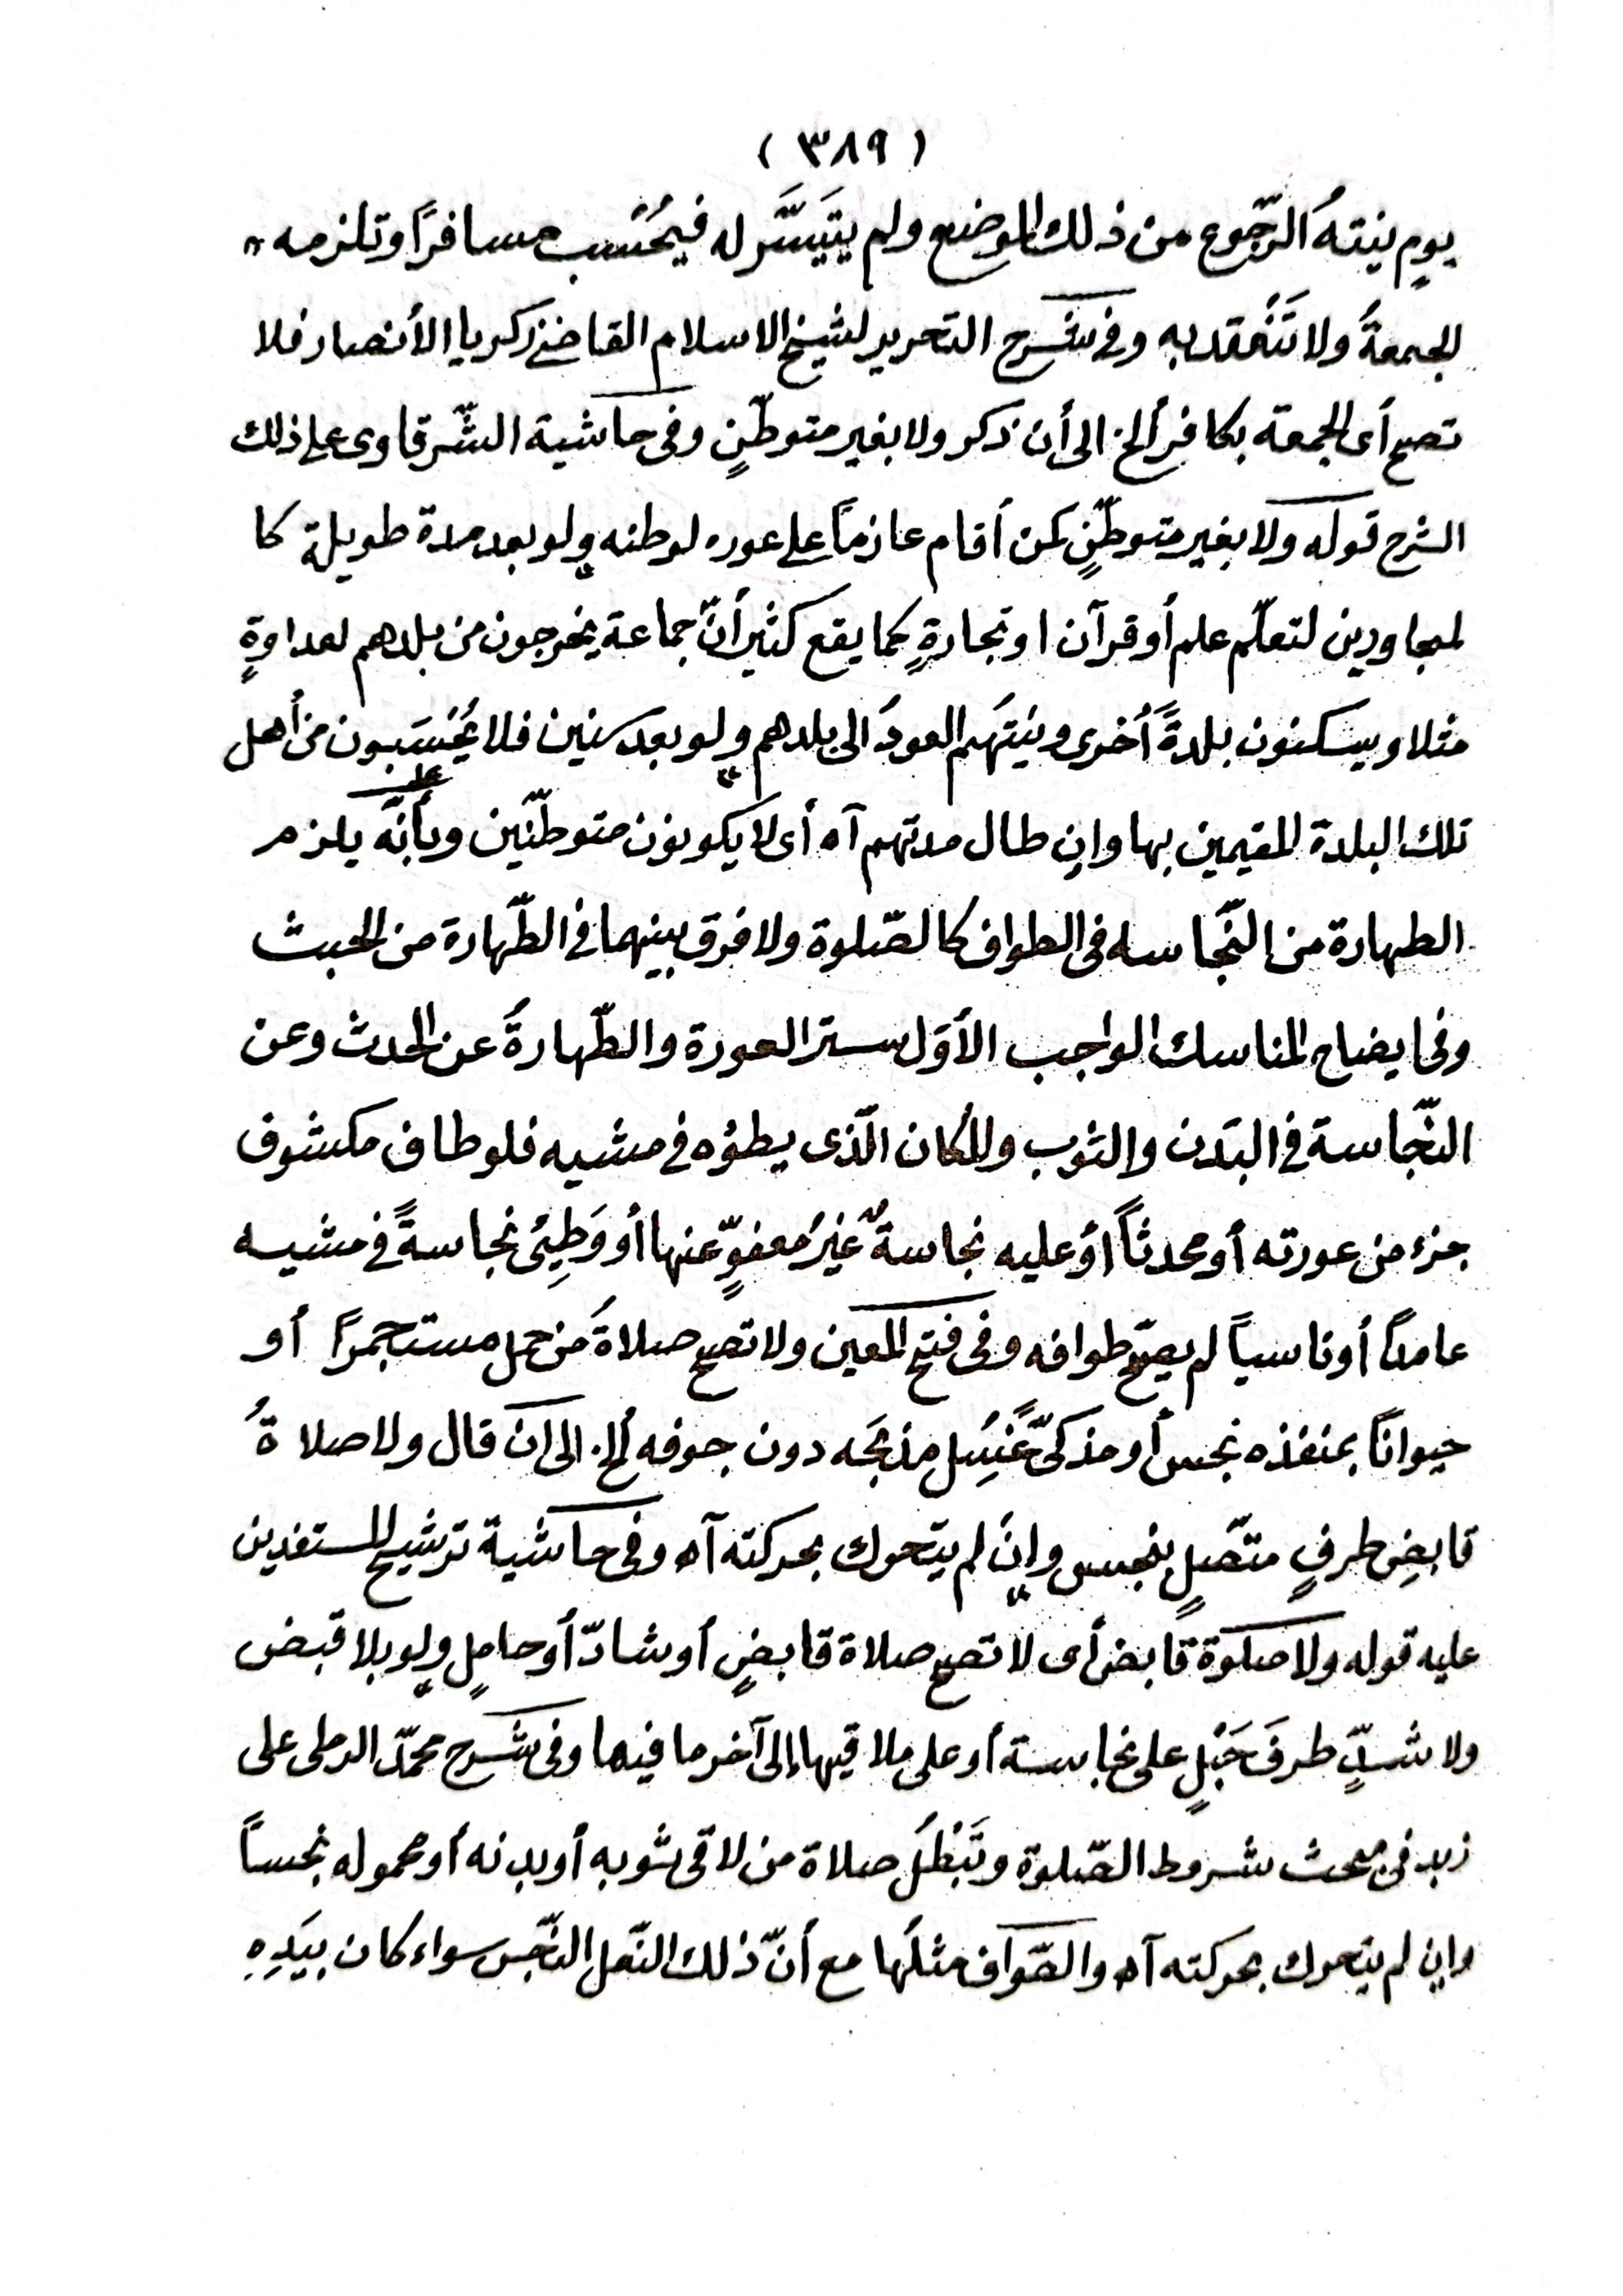 ( ٣٨٩ )
يومٍ نيتهُ الرّجوع من ذلك الموضع ولم يتيَسَّر له فيُحْسَب مسافرًا وتلزمه
الجمعةُ ولا تَنْعقد به وفى شرح التحرير لشيخ الاسلام القاضى زكريا الأنصار فلا
تصح أى الجمعة بكافر ألخ. الى أن ذكر ولا بغير متوطّنٍ وفى حاشية الشّرقاوى على ذلك
الشرح قوله ولا بغير متوطّنٍ كمن أقام عازمًا على عوده لوطنه ولو بعد مدة طويلة كا
لمجاورين لتعلّم علم أو قرآن او تجارةٍ كما يقع كثيرأنّ جماعة يخرجون من بلدهم لعداوةٍ
مثلا ويسكنون بلدةً أُخرى ونيّتهُم العودُ الى بلدهم ولو بعد سنين فلا يُحْسَبون من أهل
تلك البلدة المقيمين بها وإن طال مدتهم آه أى لا يكونون متوطّنين وبأنّه يلزم
الطهارة من النّجاسه فى الطواف كالصّلوة ولا فرق بينهما فى الطّهارة من الخبث
وفى ايضاح المناسك الواجب الأوّل ستر العورة والطّهارةُ عن الحدث وعن
النّجاسة فى البَدَن والثوب والمكان الّذى يطؤه فى مشيه فلو طاف مكشوف
جزء من عورته أو محدثاً أوْ عليه نجاسةٌ غيرُ معفوٍّ عنها أو وَطِئ نجاسةً فى مشيه
عامداً أو ناسياً لم يصحّ طوافه وفى فتح المعين ولا تصح صلاةُ من حمل مستجمراً أو
حيوانًا بمنفذه نجس أو مذكىًّ غُسِل مذبحَه دون جوفه ألخ. الى ان قال ولا صلاةُ
قابضِ طرفٍ متّصلٍ بنجس وإن لم يتحرك بحركته آه وفى حاشية ترشيح المستفدين
عليه قوله ولا صلوة قابض أى لا تصح صلاة قابضٍ أو شادّ أو حاملٍ ولو بلا قبض
ولا شدٍّ طرفَ حَبْلٍ على نجاسة أو على ملاقيها إلى آخر ما فيها وفى شرح محمّد الرملى على
زبد فى مبحث شروط الصّلوة وتَبْطُلُ صلاة من لاقى ثوبه أو بدنه أو محموله نجساً
وإن لم يتحرك بحركته آه والطّواف مثلُها مع أنّ ذلك النّعل النّجس سواء كان بِيَدِهِ